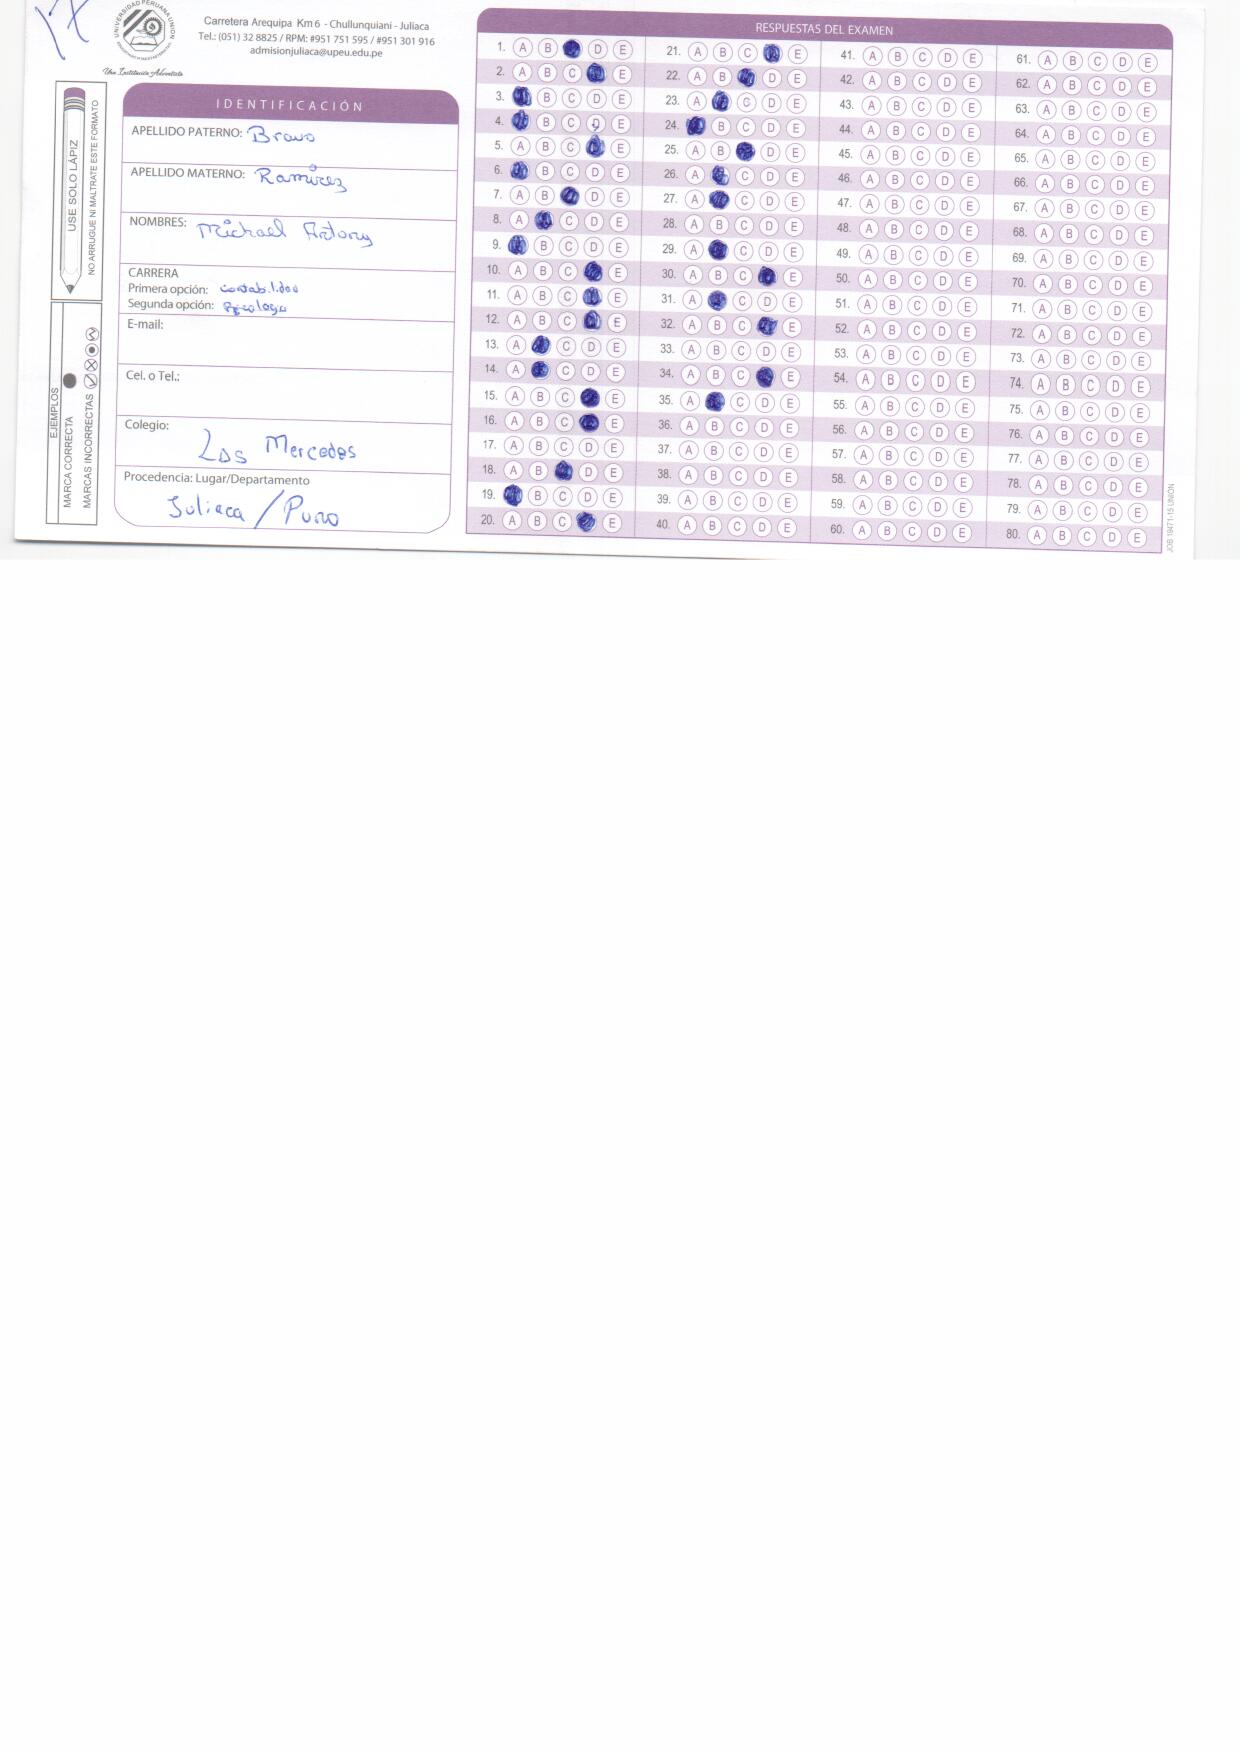 17
UNIVERSIDAD PERUANA UNION
Una Institución Adventista
Carretera Arequipa Km 6 - Chullunquiani - Juliaca
Tel.: (051) 32 8825 / RPM: #951 751 595 / #951 301 916
admisionjuliaca@upeu.edu.pe
USE SOLO LÁPIZ
NO ARRUGUE NI MALTRATE ESTE FORMATO
EJEMPLOS
MARCA CORRECTA
MARCAS INCORRECTAS
IDENTIFICACIÓN
APELLIDO PATERNO: Bravo
APELLIDO MATERNO: Ramirez
NOMBRES: Michael Antony
CARRERA
Primera opción: contabilidad
Segunda opción:
E-mail:
Cel. o Tel.:
Colegio:
Las Mercedes
Procedencia: Lugar/Departamento
Juliaca / Puno
RESPUESTAS DEL EXAMEN
1. A B D E
2. A B C E
3. B C D E
4. B C D E
5. A B C E
6. B C D E
7. A B D E
8. A C D E
9. B C D E
10. A B C E
11. A B C E
12. A B C E
13. A C D E
14. A C D E
15. A B C E
16. A B C E
17. A B C D E
18. A B D E
19. B C D E
20. A B C E
21. A B C E
22. A B D E
23. A C D E
24. B C D E
25. A B D E
26. A C D E
27. A C D E
28. A B C D E
29. A C D E
30. A B C E
31. A C D E
32. A B C E
33. A B C D E
34. A B C E
35. A C D E
36. A B C D E
37. A B C D E
38. A B C D E
39. A B C D E
40. A B C D E
41. A B C D E
42. A B C D E
43. A B C D E
44. A B C D E
45. A B C D E
46. A B C D E
47. A B C D E
48. A B C D E
49. A B C D E
50. A B C D E
51. A B C D E
52. A B C D E
53. A B C D E
54. A B C D E
55. A B C D E
56. A B C D E
57. A B C D E
58. A B C D E
59. A B C D E
60. A B C D E
61. A B C D E
62. A B C D E
63. A B C D E
64. A B C D E
65. A B C D E
66. A B C D E
67. A B C D E
68. A B C D E
69. A B C D E
70. A B C D E
71. A B C D E
72. A B C D E
73. A B C D E
74. A B C D E
75. A B C D E
76. A B C D E
77. A B C D E
78. A B C D E
79. A B C D E
80. A B C D E
JOB 19471-15 UNIÓN